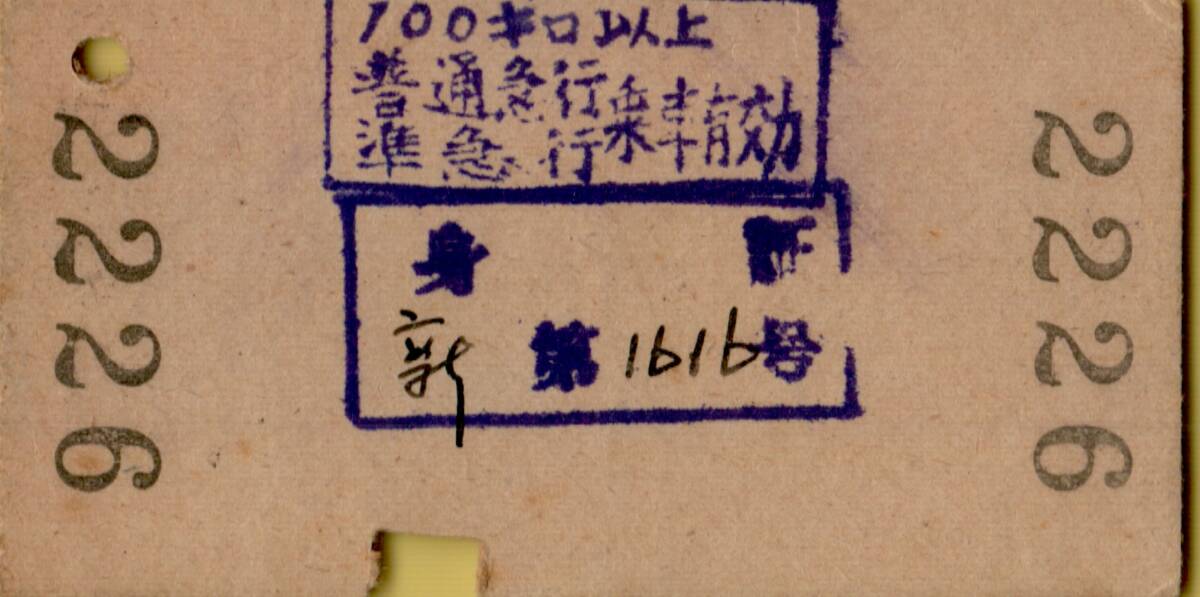 100キロ以上
普通急行
準急行
乗車有効
身 証
新 第1616号
2226
2226